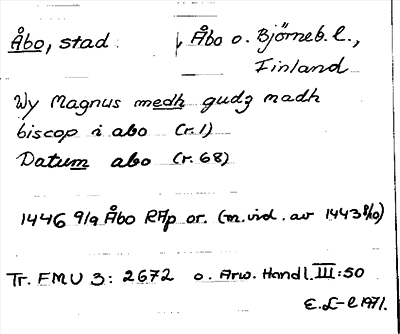 Åbo, stad Åbo o. Björneb. l.,
Finland
Wy Magnus medh gudz nadh
biscop i abo (r. 1)
Datum abo (r. 68)
1446 9/9 Åbo RAp or. (m. vid. av 1443 8/10)
Tr. FMU 3: 2672 o. Arw. Handl. III: 50
E. L-l 1971.